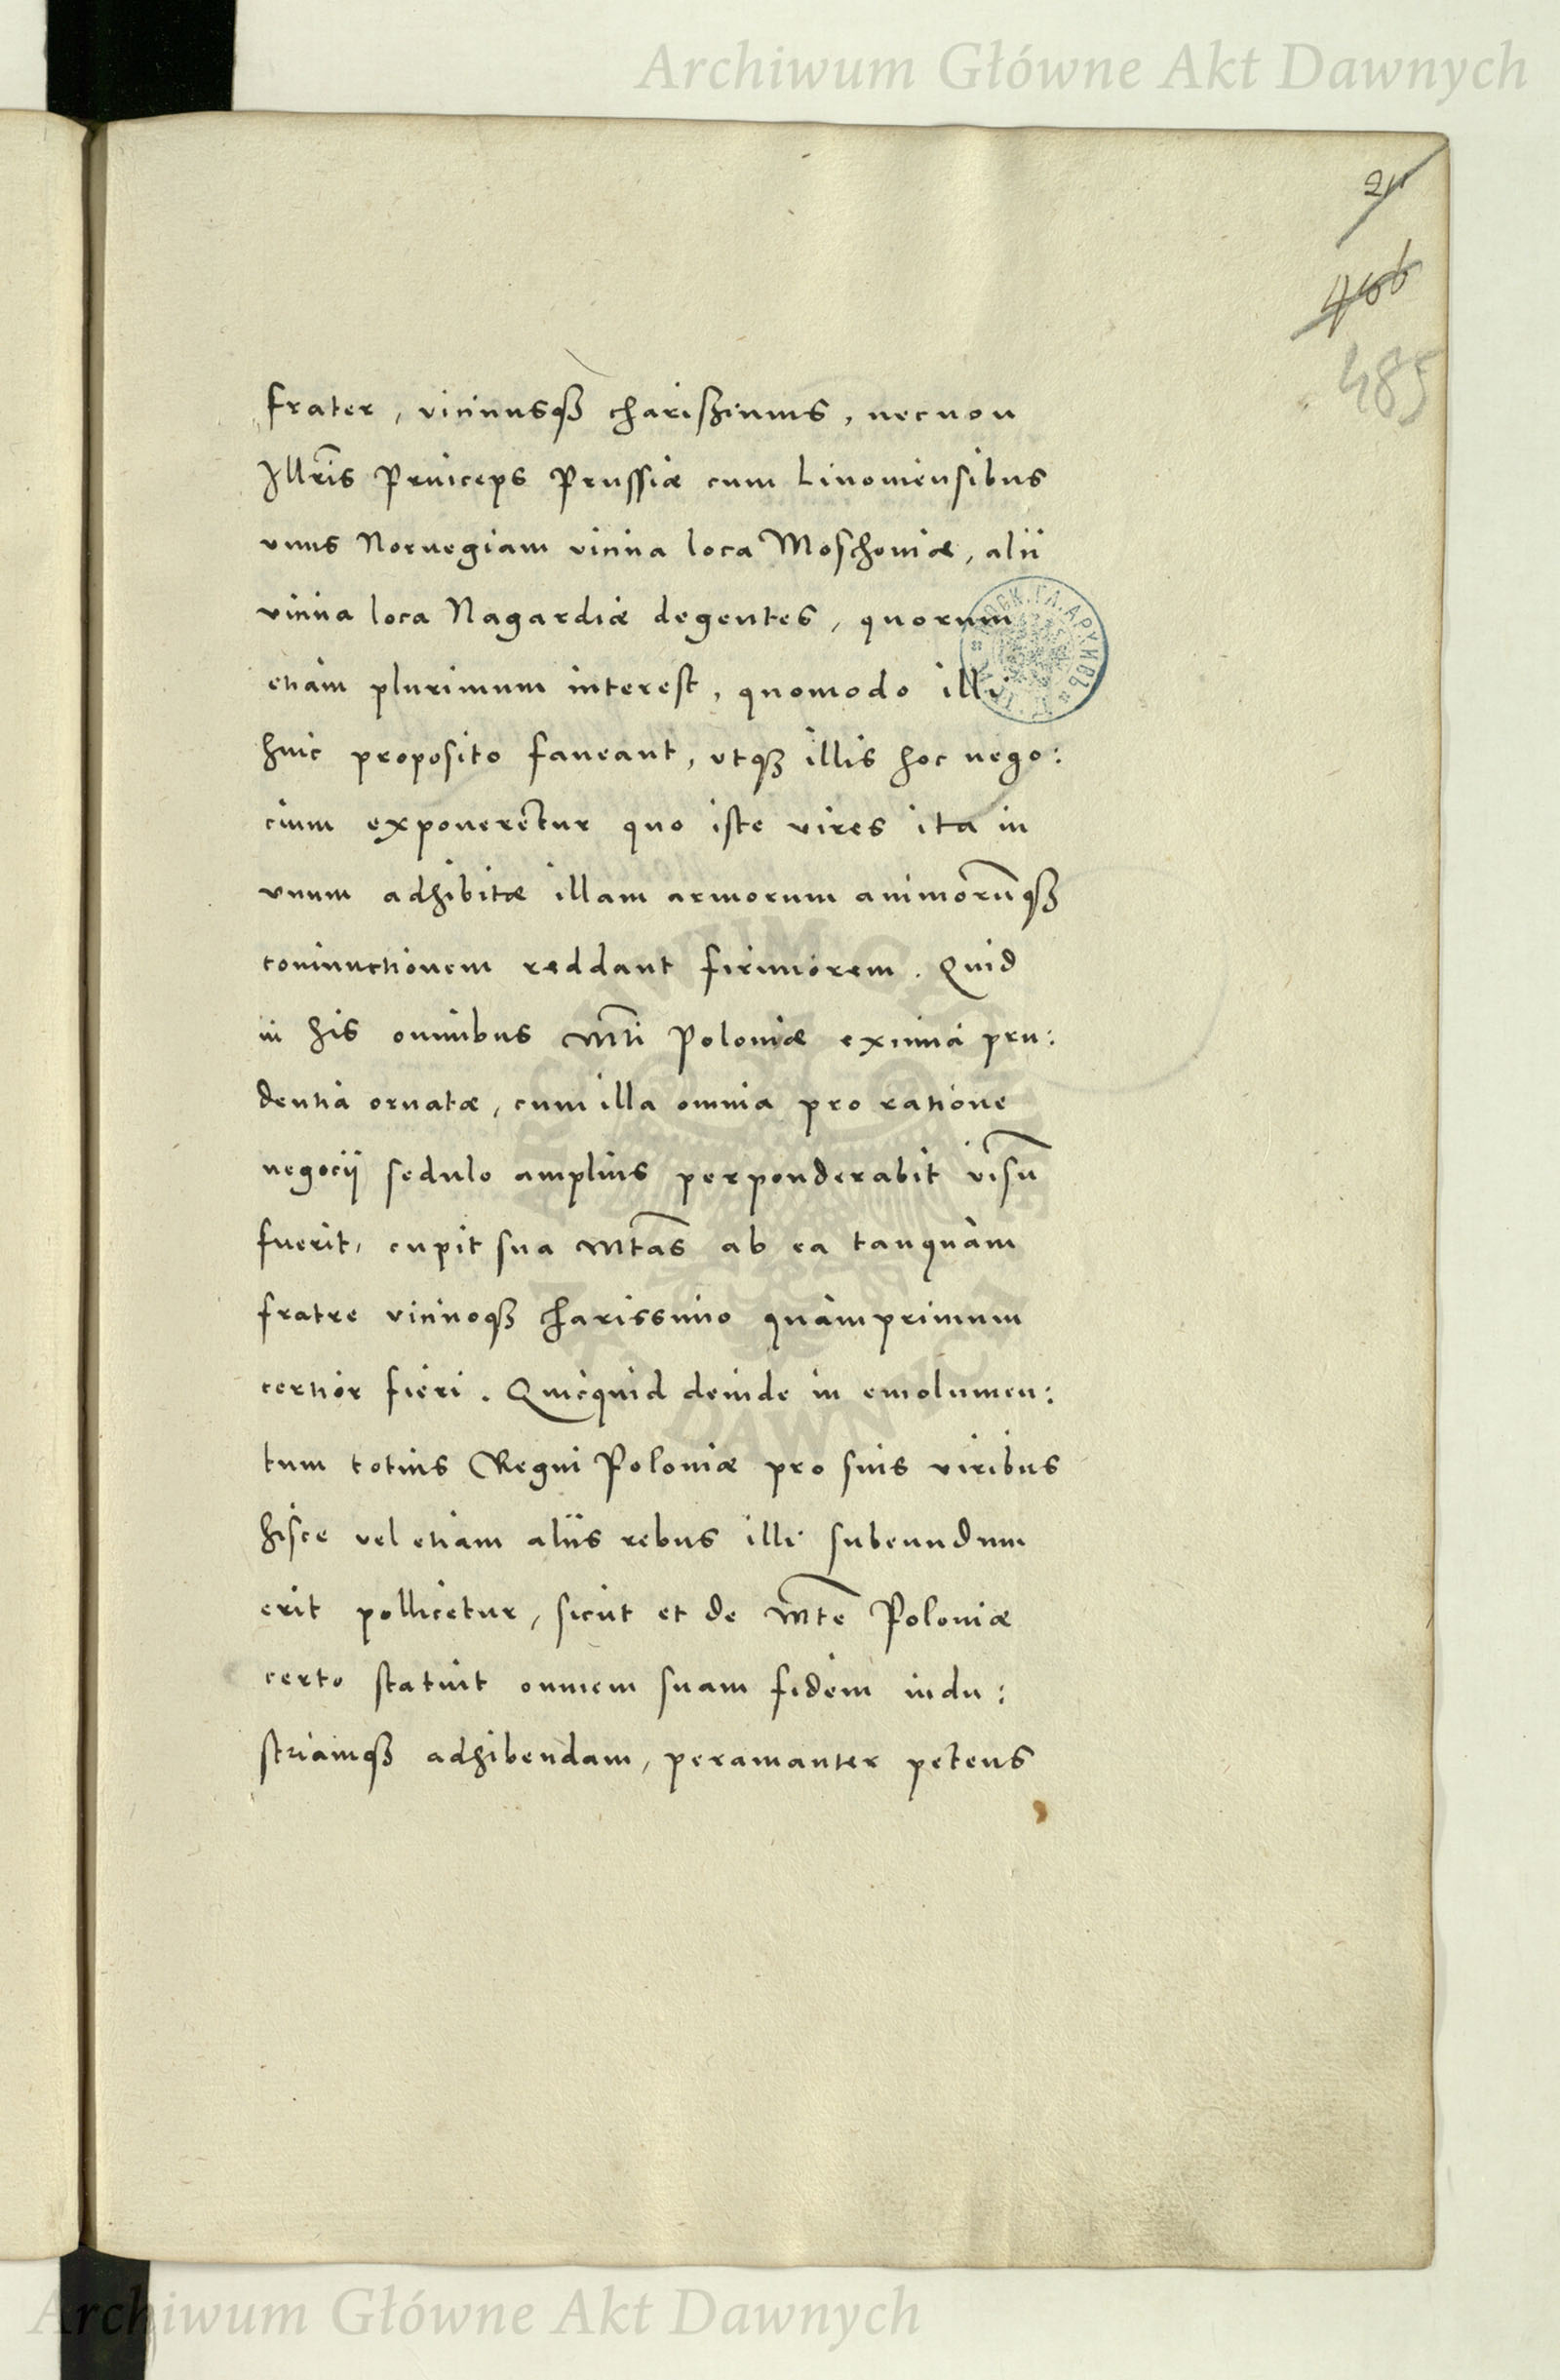 Archiwum Główne Akt Dawnych
485
frater, vicinusqȝ charißimus, necnon
Illr̃is Princeps Prussiæ cum Liuoniensibus
vnus Noruegiam vicina loca Moschouiæ, alii
vicina loca Nagardiæ degentes, quorum
etiam plurimum interest, quomodo illi
huic proposito faueant, vtqȝ illis hoc nego:
cium exponeretur quo iste vires ita in
vnum adhibitæ illam armorum animorũqȝ
coniunctionem reddant firmiorem. Quid
in his omnibus Mti Poloniæ eximia pru:
dentia ornatæ, cum illa omnia pro ratione
negocij sedulo amplius perponderabit visũ
fuerit, cupit sua Mtas ab ea tanquam
fratre vicinoqȝ charissimo quamprimum
certior fieri. Quicquid deinde in emolumen:
tum totius Regni Poloniæ pro suis viribus
hisce vel etiam aliis rebus illi subeundum
erit pollicetur, sicut et de Mte Poloniæ
certo statuit omnem suam fidem indu:
striamqȝ adhibendam, peramanter petens
Archiwum Główne Akt Dawnych